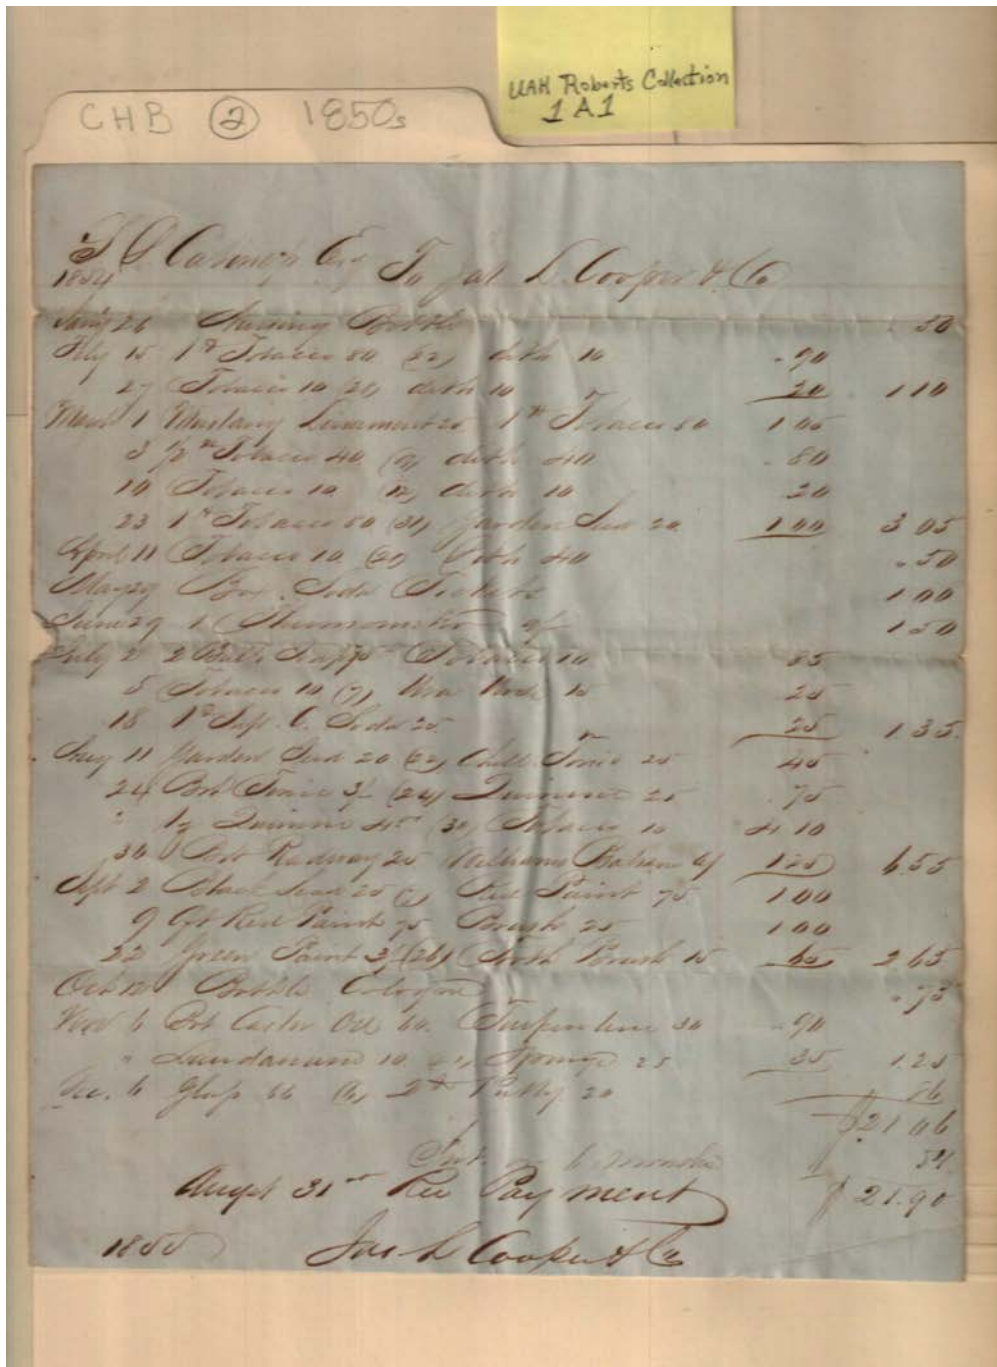 UAH Roberts Collection
1A1
CHB ② 1850s
S. C. Esq To Jas L. Cooper & Co
1854
Jany 26 Nursing Bottle 50
Feby 15 1 lb Tobacco 80 (22) ditto 10 .90
27 Tobacco 10 (28) ditto 10 20 1 10
March 1 Mustang Linament 25 1 lb Tobacco 80 1 05
3 1/2 lb Tobacco 40 (9) ditto 40 .80
10 Tobacco 10 (12) ditto 10 20
23 1 lb Tobacco 80 (31) Garden Seed 20 1 00 3 05
April 11 Tobacco 10 (20) Ditto 40 .50
May 29 Box Soda 1 00
June 29 1 Thermometer 9/ 1 50
July 2 2 75 Tobacco 10 85
5 Tobacco 10 (7) 15 25
18 1 lb Sup. C. Soda 25 25 1 35.
Aug 11 Garden Seed 20 (22) Chill Tonic 25 45
24 Bot Tonic 3/ (24) Quinine 25 .75
" Quinine (30) Tobacco 10 4 10
30 Bot Radway 25 Williams Balsam 6/ 1 25 6.55
Sept 2 Black Lead 25 Red Paint 75 1 00
9 Red Paint 75 Brush 25 1 00
22 Green Paint 3/ (26) Tooth Brush 15 65 2 65
Oct Bottle Cologne .75
Nov 6 Bot Castor Oil 60. Turpentine 30 .90
" Laudanum 10 Sponge 25 35 1.25
Dec. 6 Glass 66 (6) 2 lb Putty 20 86
$21 06
Int. 6 months 84
Augst 31st Rec Payment $21.90
1855 Jas L Cooper & Co